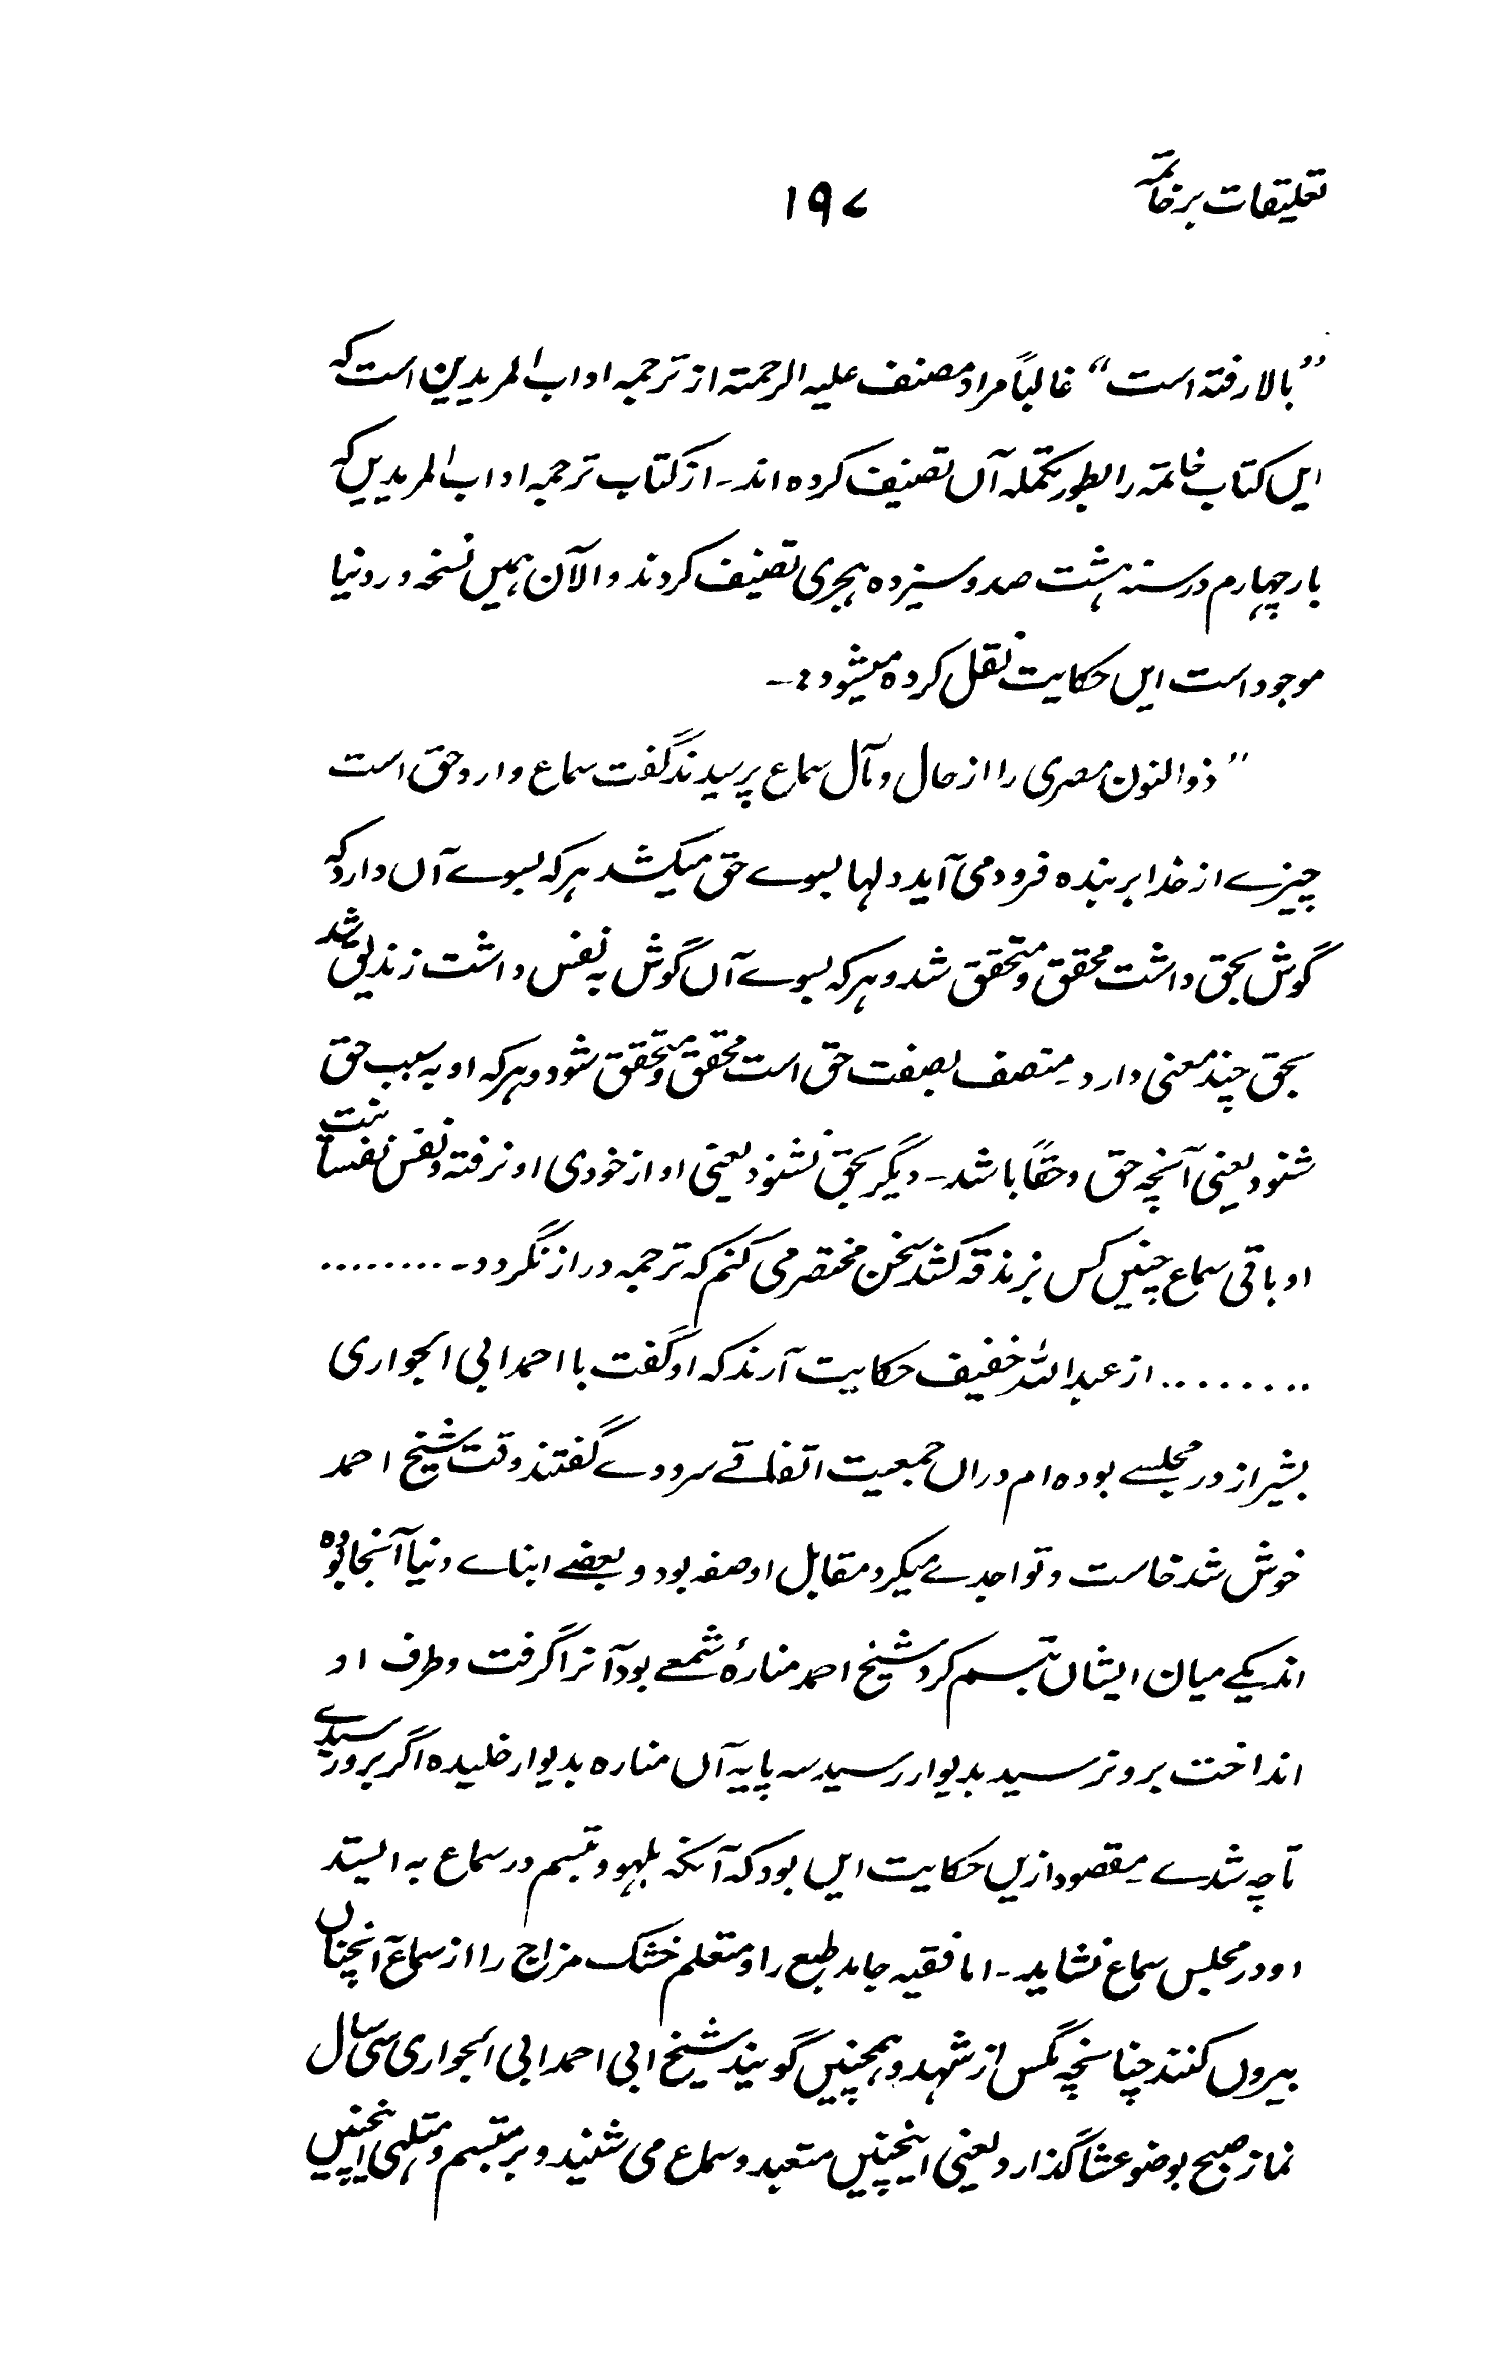 تعلیقات بر خاتمہ ۱۹۷
”بالا رفتہ است“ غالباً مراد مصنف علیہ الرحمتہ از ترجمہ اداب المریدین است کہ
ایں کتاب خاتمہ را بطور تکملہ آں تصنیف کردہ اند۔ از کتاب ترجمہ اداب المریدیں کہ
بار چہارم در سنہ ہشت صد و سیزدہ ہجری تصنیف کردند و الآن ہمیں نسخہ در دنیا
موجود است ایں حکایت نقل کردہ میشود :۔
”ذوالنون مصری را از حال و مآل سماع پرسیدند گفت سماع وارد حق است
چیزے از خدا بر بندہ فرود می آید دلہا بسوے حق میکشد ہر کہ بسوے آں دارد کہ
گوش بحق داشت محقق و متحقق شد و ہر کہ بسوے آں گوش بہ نفس داشت زندیق شد
بحق چند معنی دارد۔ متصف بصفت حق است محقق و متحقق شود و ہر کہ او بہ سبب حق
شنود یعنی آنچہ حق و حقاً باشد۔ دیگر بحق نشنود یعنی او از خودی او نرفتہ و نفس نفسانیت
او باقی سماع چنیں کس بزندقہ کشد سخن مختصر می کنم کہ ترجمہ دراز نگردد۔ ........
........ از عبداللہ خفیف حکایت آرند کہ او گفت با احمد ابی الحواری
بشیراز در مجلسے بودہ ام دراں جمعیت اتفاقے سرودے گفتند وقت شیخ احمد
خوش شد خاست و تواجدے میکرد مقابل او صفہ بود و بعضے ابناے دنیا آنجا بودہ
اند یکے میان ایشاں تبسم کرد شیخ احمد منارۂ شمعے بود آنرا گرفت و طرف او
انداخت برو نرسید بدیوار رسید سہ پایہ آں منارہ بدیوار خلیدہ اگر برو رسیدے
تا چہ شدے۔ مقصود ازیں حکایت ایں بود کہ آنکہ بلہو و تبسم در سماع بہ ایستد
او در مجلس سماع نشاید۔ اما فقیہ جامد طبع را و متعلم خشک مزاج را از سماع آنچناں
بیروں کنند چنانچہ مگس از شہد و ہمچنیں گویند شیخ ابی احمد ابی الحواری سی سال
نماز صبح بوضو عشا گذارد یعنی اینچنیں متعبد و سماع می شنید و بر متبسم و متلہی اینچنیں